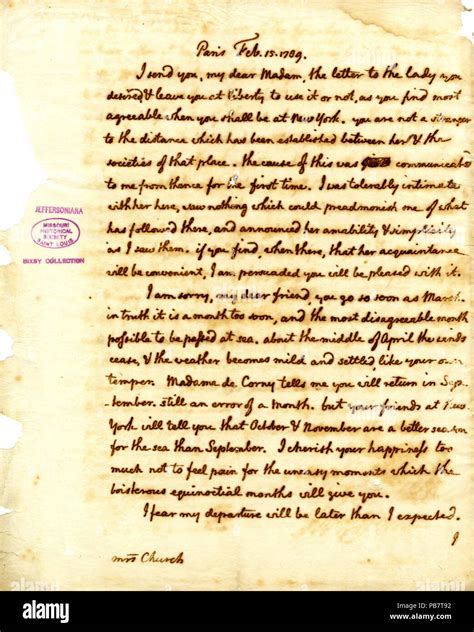 Paris Feb. 15. 1789.
I send you, my dear Madam, the letter to the lady you
desired & leave you at liberty to use it or not, as you find most
agreeable when you shall be at New York. you are not a stranger
to the distance which has been established between her & the
societies of that place. the cause of this was communicated
to me from thence for the first time. I was tolerably intimate
with her here, saw nothing which could premonish me of what
has followed there, and announced her amability & simplicity
as I saw them. if you find, when there, that her acquaintance
will be convenient, I am persuaded you will be pleased with it.
I am sorry, my dear friend, you go so soon as March.
in truth it is a month too soon, and the most disagreeable month
possible to be passed at sea. about the middle of April the winds
cease, & the weather becomes mild and settled, like your own
temper. Madame de Corny tells me you will return in Sep-
tember. still an error of a month. but your friends at New
York will tell you that October & November are a better season
for the sea than September. I cherish your happiness too
much not to feel pain for the uneasy moments which the
boisterous equinoctial months will give you.
I fear my departure will be later than I expected.
I
mrs Church
JEFFERSONIANA
MISSOURI
HISTORICAL
SOCIETY
SAINT LOUIS
BIXBY COLLECTION
a
alamy stock photo
alamy
Image ID: PB7T92
www.alamy.com